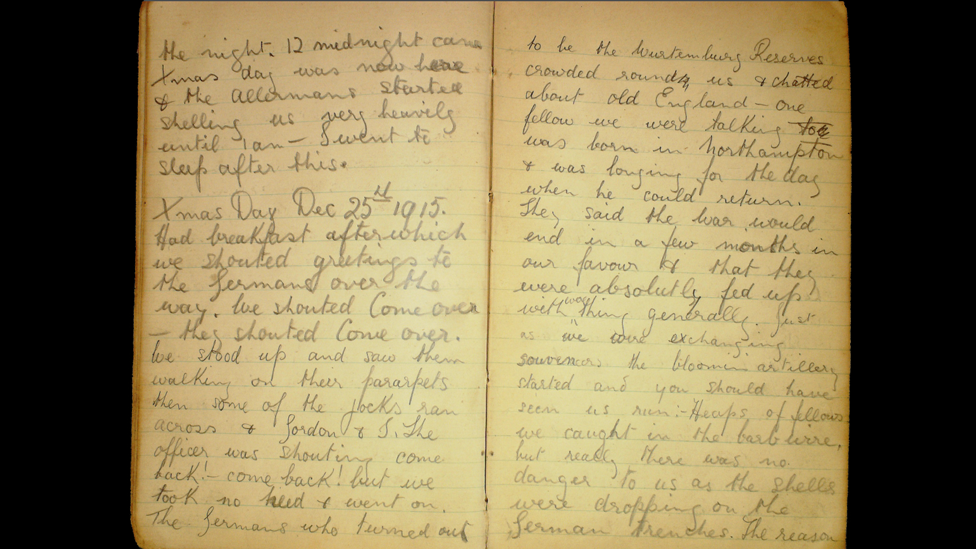 the night. 12 midnight came
Xmas day was now here
& the Allermans started
shelling us very heavily
until 1am — I went to
sleep after this.
Xmas Day Dec 25th 1915.
Had breakfast after which
we shouted greetings to
the Germans over the
way. We shouted Come over
— they shouted Come over.
We stood up and saw them
walking on their pararpets
then some of the Jocks ran
across & Gordon & I. The
officer was shouting come
back! — come back! but we
took no heed & went on.
The Germans who turned out
to be the Wurtemburg Reserves
crowded round us & chatted
about old England — one
fellow we were talking to
was born in Northampton
& was longing for the day
when he could return.
They said the war would
end in a few months in
our favour & that they
were absolutly fed up
with things generally. Just
as we were exchanging
souveniors the bloomin artillery
started and you should have
seen us run :- Heaps of fellows
we caught in the barb wire.
but really there was no
danger to us as the shells
were dropping on the
German trenches. The reason